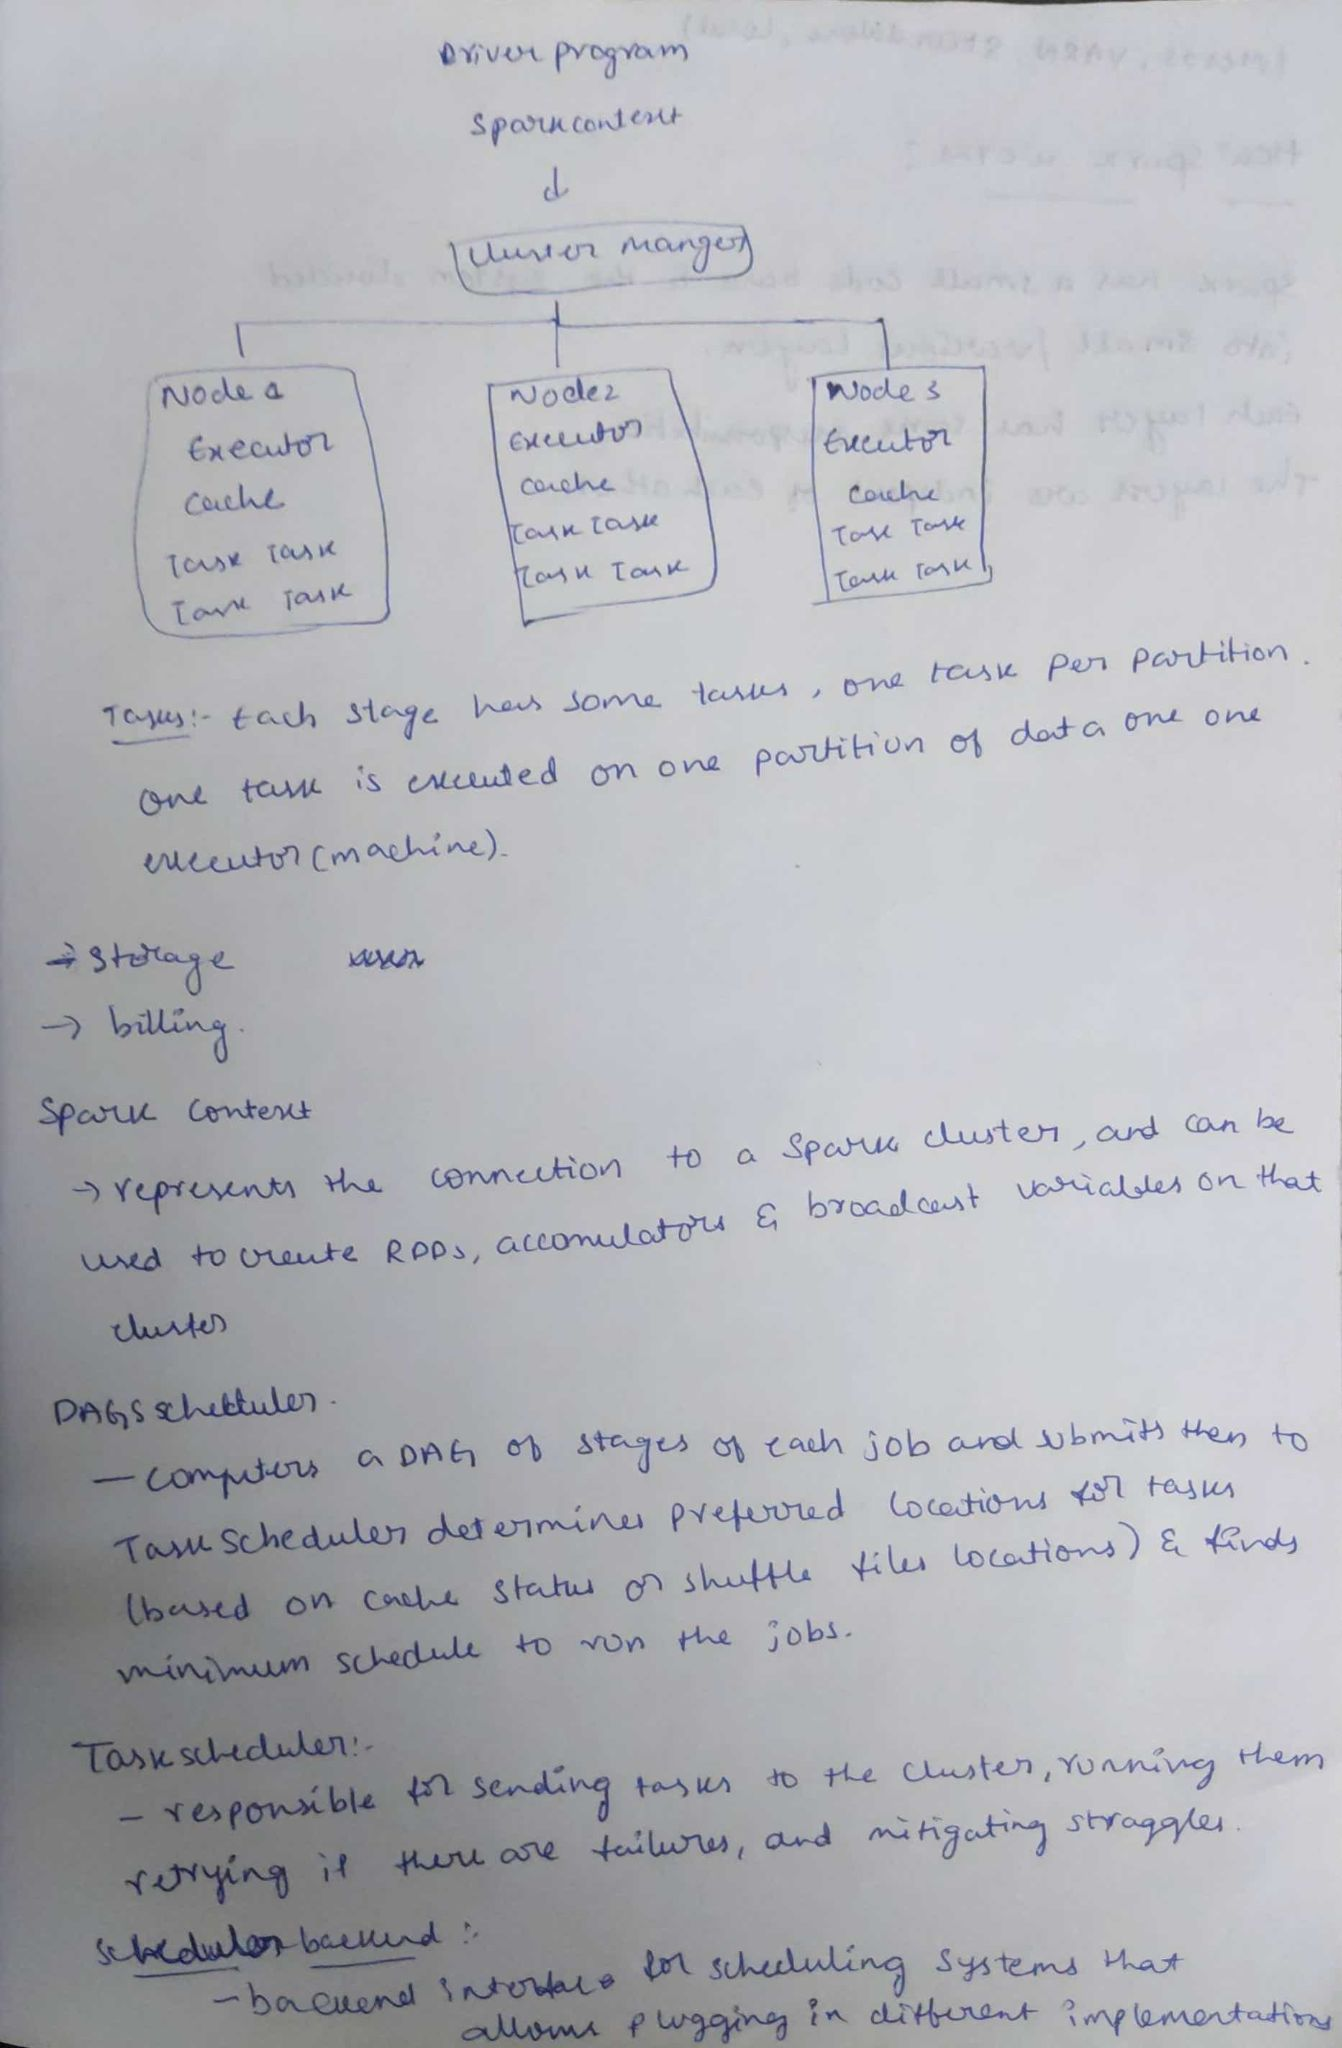 Driver program
Sparkcontext
Cluster manger
Node 1
Executor
Cache
Task Task
Task Task
Node 2
Executor
Cache
Task Task
Task Task
Node 3
Executor
Cache
Task Task
Task Task
Tasks:- Each stage has some tasks, one task per partition.
One task is executed on one partition of data one one
executor (machine).
→ Storage
→ billing.
Spark Context
→ represents the connection to a Spark cluster, and can be
used to create RDDs, accomulators & broadcast variables on that
cluster
DAGSscheduler.
- computers a DAG of stages of each job and submits then to
Task Scheduler determines preferred locations for tasks
(based on cache status or shuffle files locations) & finds
minimum schedule to run the jobs.
Task scheduler:-
- responsible for sending tasks to the cluster, running them
retrying if there are failures, and mitigating straggles.
Scheduler backend :-
- backend interface for scheduling systems that
allows plugging in different implementations